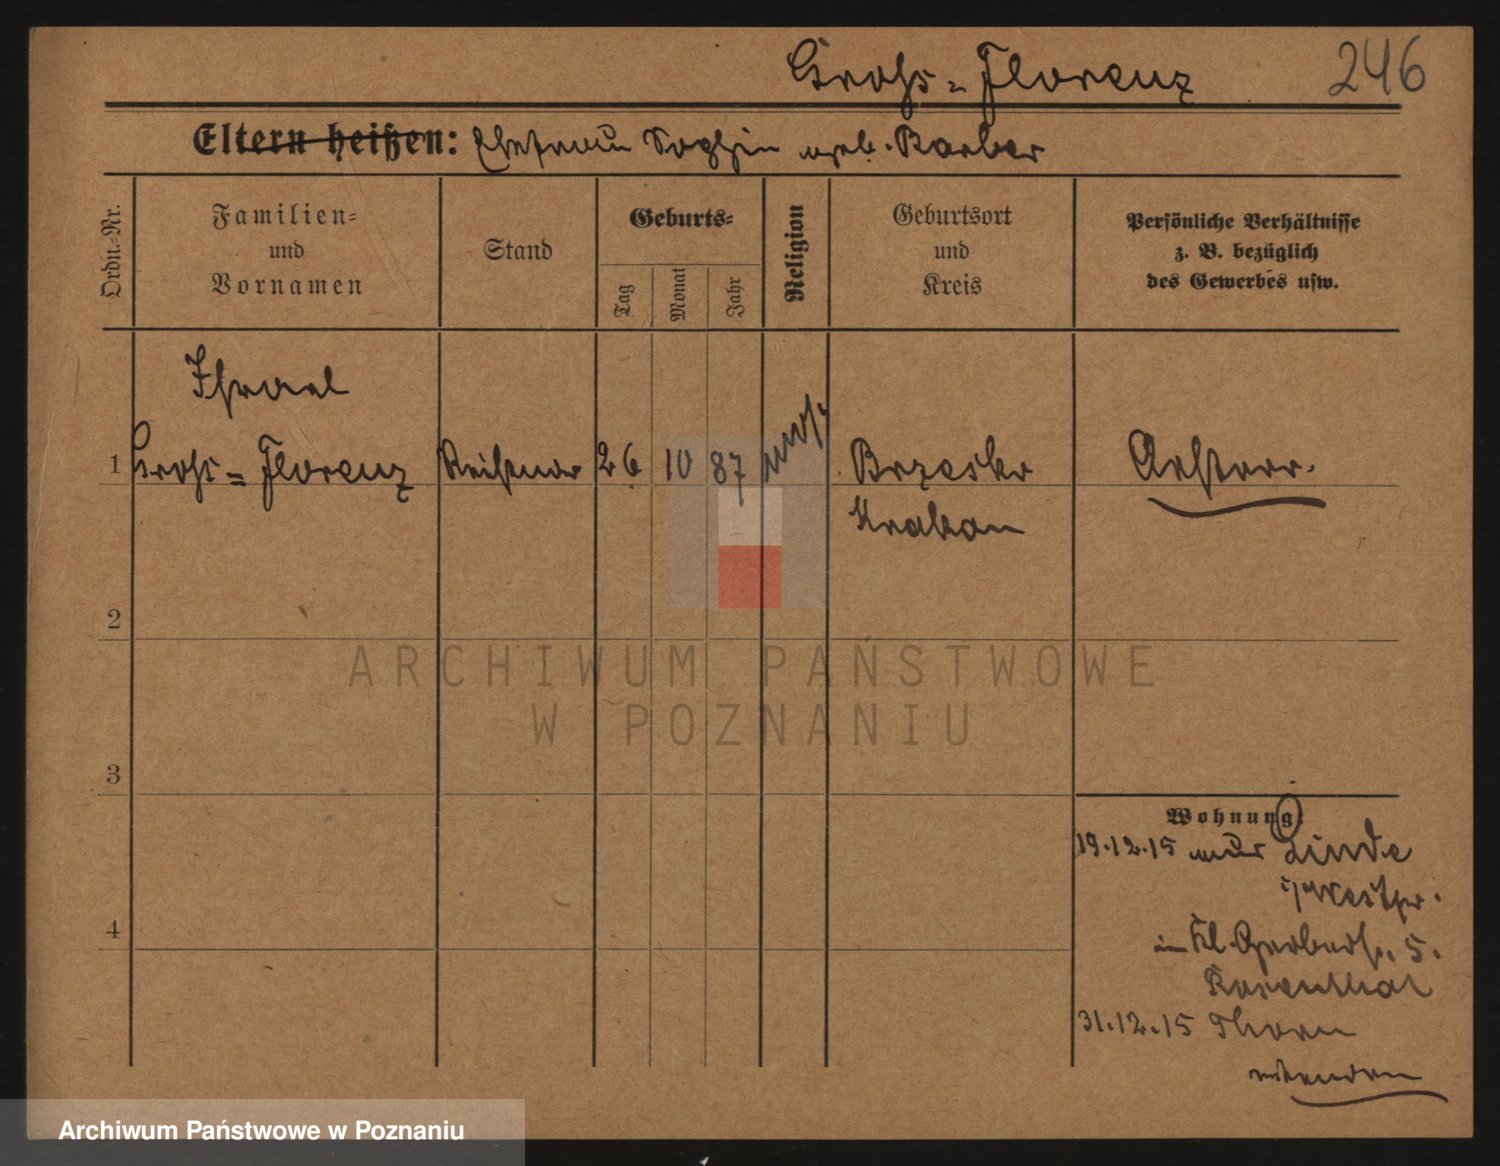 Groß = Florenz 246
Eltern heißen: Ehefrau Sophie geb. Barber
Ordn.-Nr.
Familien-
und
Vornamen
Stand
Geburts-
Tag
Monat
Jahr
Religion
Geburtsort
und
Kreis
Persönliche Verhältnisse
z. B. bezüglich
des Gewerbes usw.
Israel
1 Groß = Florenz Reisender 26 10 87 mos. Brzesko Österr.
Krakau
2
3
4
Wohnung:
19.12.15 aus Linde
i/Westpr.
in Kl. Gerberstr. 5.
Rosenthal
31.12.15 Thorn
ARCHIWUM PAŃSTWOWE
W POZNANIU
Archiwum Państwowe w Poznaniu